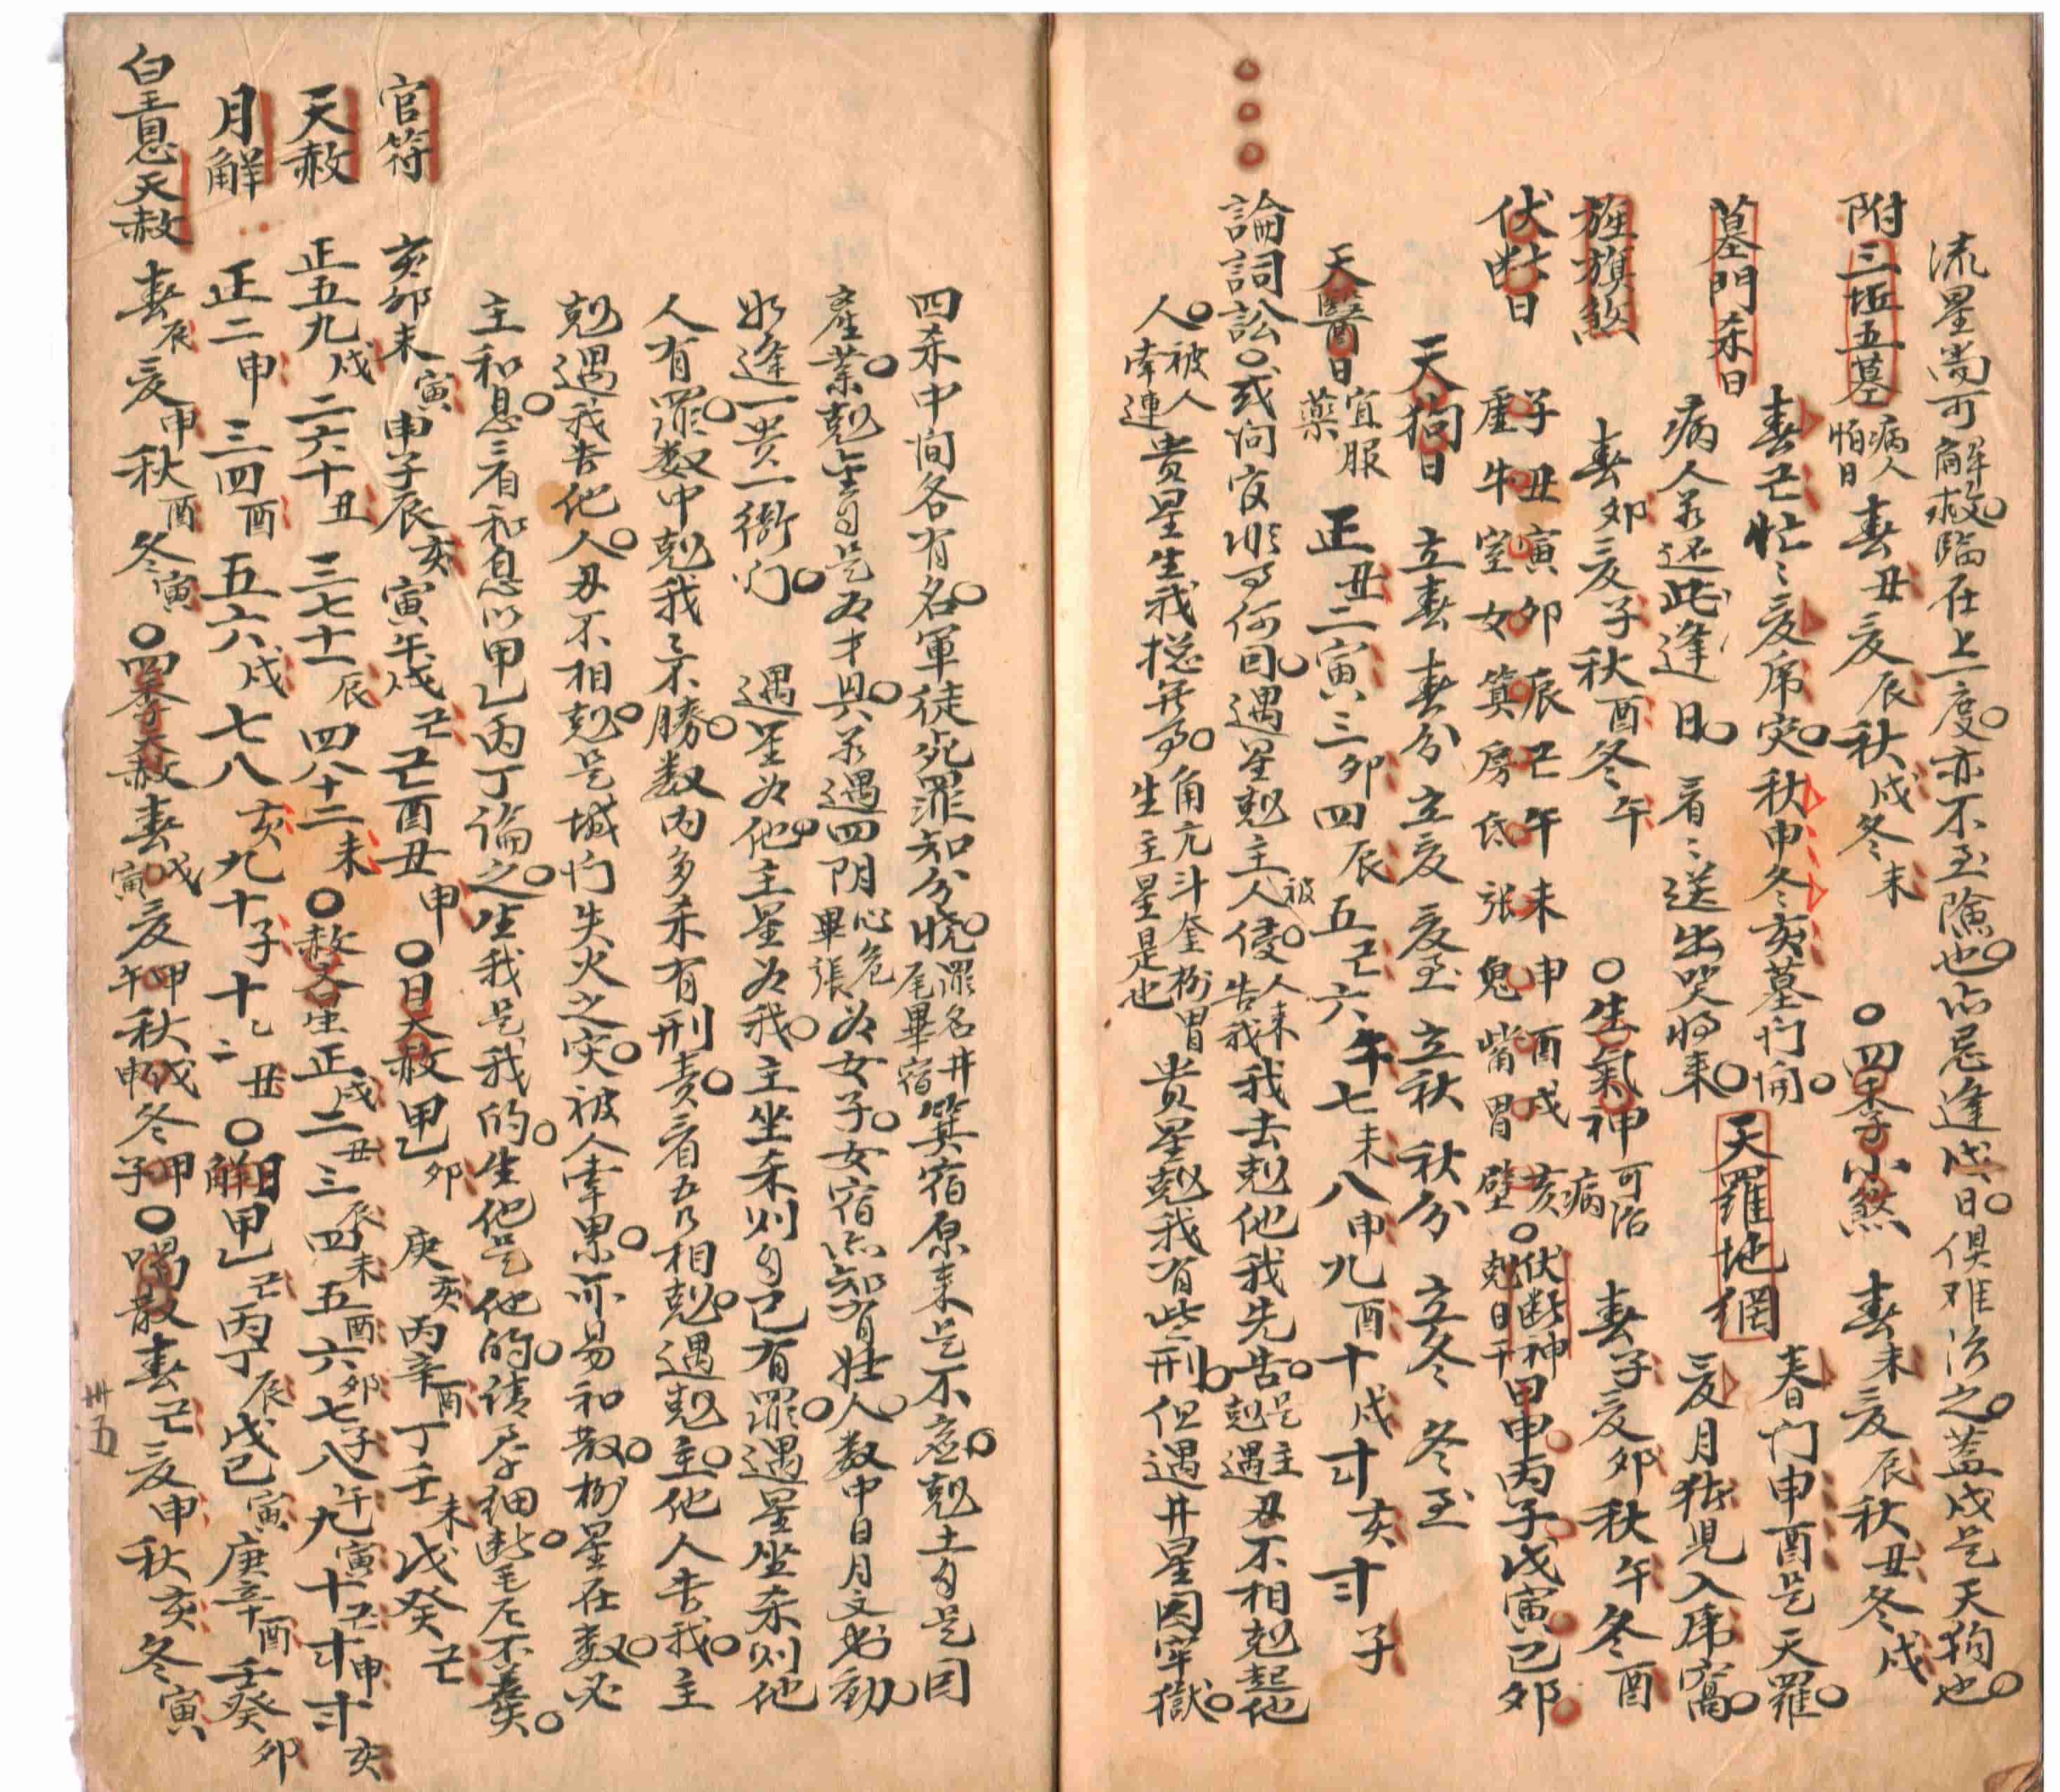 流星尚可解救临在上度亦不至險也占忌逢戊日俱难治之蓋戌是天狗也
附三坵五墓 病人怕日 春丑夏辰秋戌冬未 四季小煞 春未夏辰秋丑冬戌
墓門杀日 春芒忙〻夏席突秋申冬亥墓门闹 天羅地網 春门申酉是天羅
病人若还此逢日看〻送出哭将来 夏月猪見入席窩
旌旗煞 春卯夏子秋酉冬午 生氣神 可治病 春子夏卯秋午冬酉
伏断日 子丑寅卯辰芒午未申酉戌亥 伏断神剋日干 甲申丙子戊寅己卯
虚牛室女箕房低张鬼觜胃壁
天狗日 立春 春分 立夏 夏至 立秋 秋分 立冬 冬至
天醫日 宜服藥 正丑二寅三卯四辰五芒六午七未八申九酉十戌十一亥十二子
論詞訟或问官非事何因遇星剋主人被侵人来告我我去剋他我先告是主剋遇丑不相剋起他
人被人牽連貴星生我总无事角亢斗奎柳胃生主星是也貴星剋我有些刑但遇井星囚牢獄
四杀中间各有名軍徒死罪知分晓罪名井尾畢宿箕宿原来是不应剋土自是因
產業剋金自是为才興若遇四阴心危畢張为女子女宿占知有壮人数中日月文书動
如逢一贵一衙门 遇星为他主星为我主坐杀则自己有罪遇星坐杀则他
人有罪数中剋我〻不勝数内多杀有刑责看五乃相剋遇剋主他人告我主
剋遇我告他人丑不相剋是城门失火之灾被人牽累亦易和散柳星在数必
主和息三看和息以甲乙丙丁論之生我是我的生他是他的请君仔细断毛厘不差矣
官符 亥卯未寅 申子辰亥 寅午戌芒 芒酉丑申 日天赦 甲乙卯 庚亥 丙辛酉 丁壬未 戊癸芒
天赦 正五九戌 二六十丑 三七十一辰 四八十二未 赦文星 正戌二丑三辰四未五酉六卯七子八午九寅十芒十一申十二亥
月解 正二申 三四酉 五六戌 七八亥 九十子 十乙二丑 日解 甲乙芒 丙丁辰 戊己寅 庚辛酉 壬癸卯
白王恩天赦 春辰夏申秋酉冬寅 四季天赦 春戊寅夏甲午秋戊申冬甲子 喝散 春芒夏申秋亥冬寅
卅五